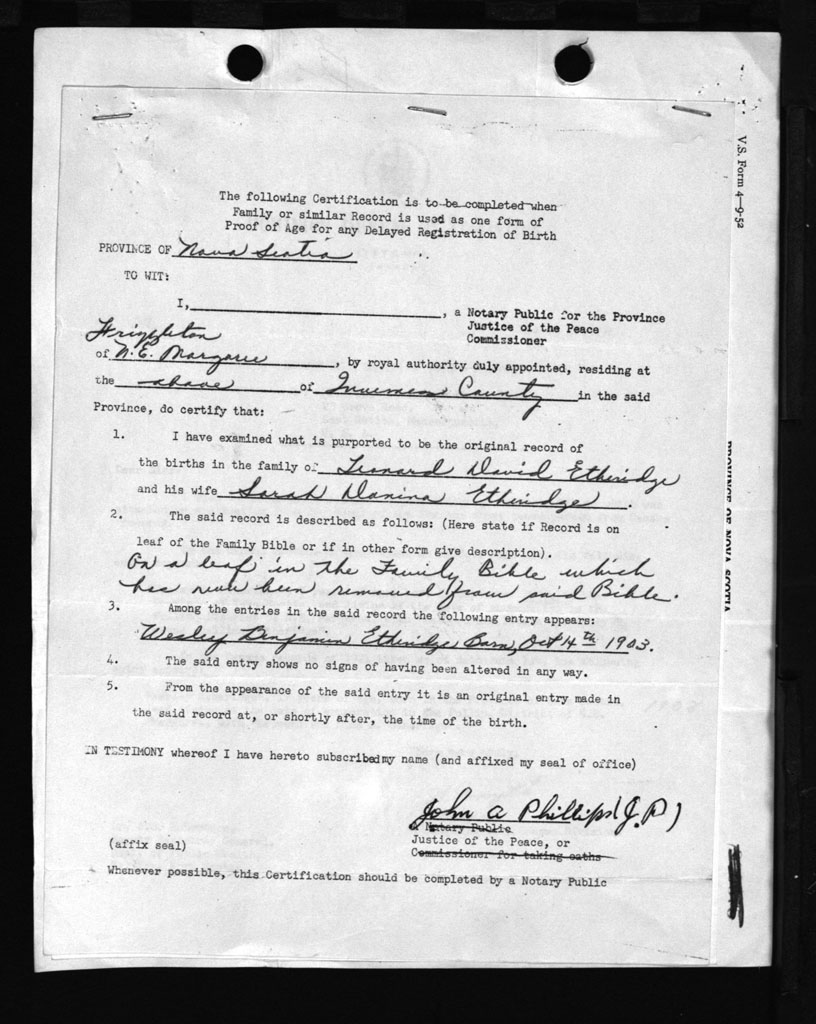 The following Certification is to be completed when
Family or similar Record is used as one form of
Proof of Age for any Delayed Registration of Birth
PROVINCE OF Nova Scotia
TO WIT:
I, , a Notary Public for the Province
Justice of the Peace
Commissioner
Frizzleton
of N.E. Margaree , by royal authority duly appointed, residing at
the above of Inverness County in the said
Province, do certify that:
1. I have examined what is purported to be the original record of
the births in the family of Leonard David Etheridge
and his wife Sarah Etheridge .
2. The said record is described as follows: (Here state if Record is on
leaf of the Family Bible or if in other form give description).
On a leaf in the Family Bible which
has now been removed from said Bible.
3. Among the entries in the said record the following entry appears:
Wesley Benjamin Etheridge Born, Oct 14th 1903.
4. The said entry shows no signs of having been altered in any way.
5. From the appearance of the said entry it is an original entry made in
the said record at, or shortly after, the time of the birth.
IN TESTIMONY whereof I have hereto subscribed my name (and affixed my seal of office)
John A Phillips (J.P.)
A Notary Public
Justice of the Peace, or
(affix seal) Commissioner for taking oaths
Whenever possible, this Certification should be completed by a Notary Public
V.S. Form 4—9-52
PROVINCE OF NOVA SCOTIA